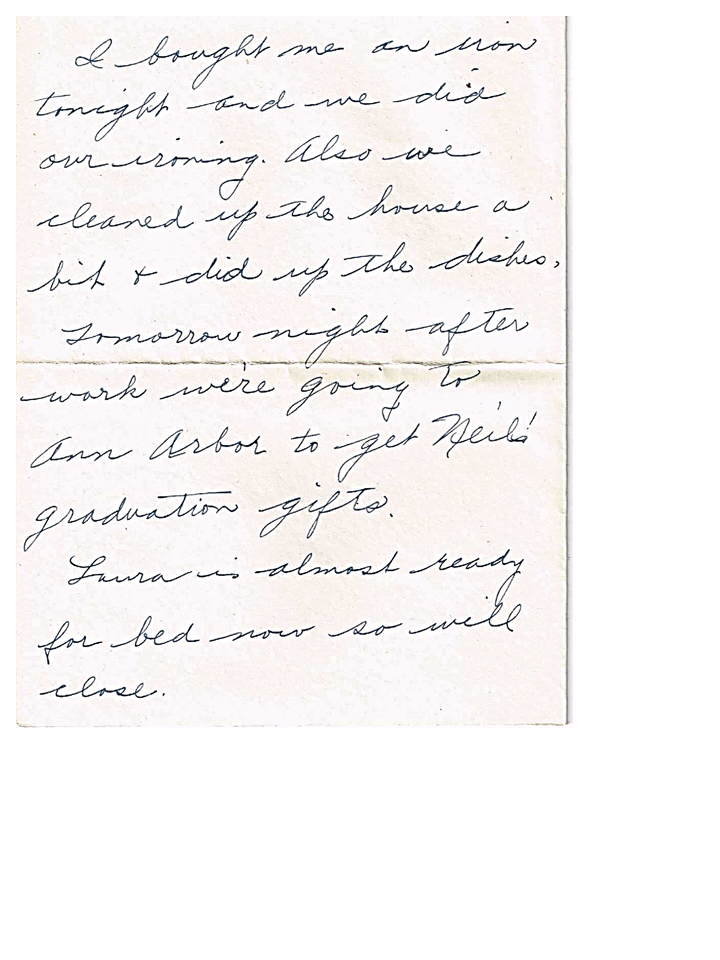 I bought me an iron
tonight and we did
our ironing. Also we
cleaned up the house a
bit & did up the dishes.
Tomorrow night after
work we're going to
Ann Arbor to get Neil's
graduation gifts.
Laura is almost ready
for bed now so will
close.